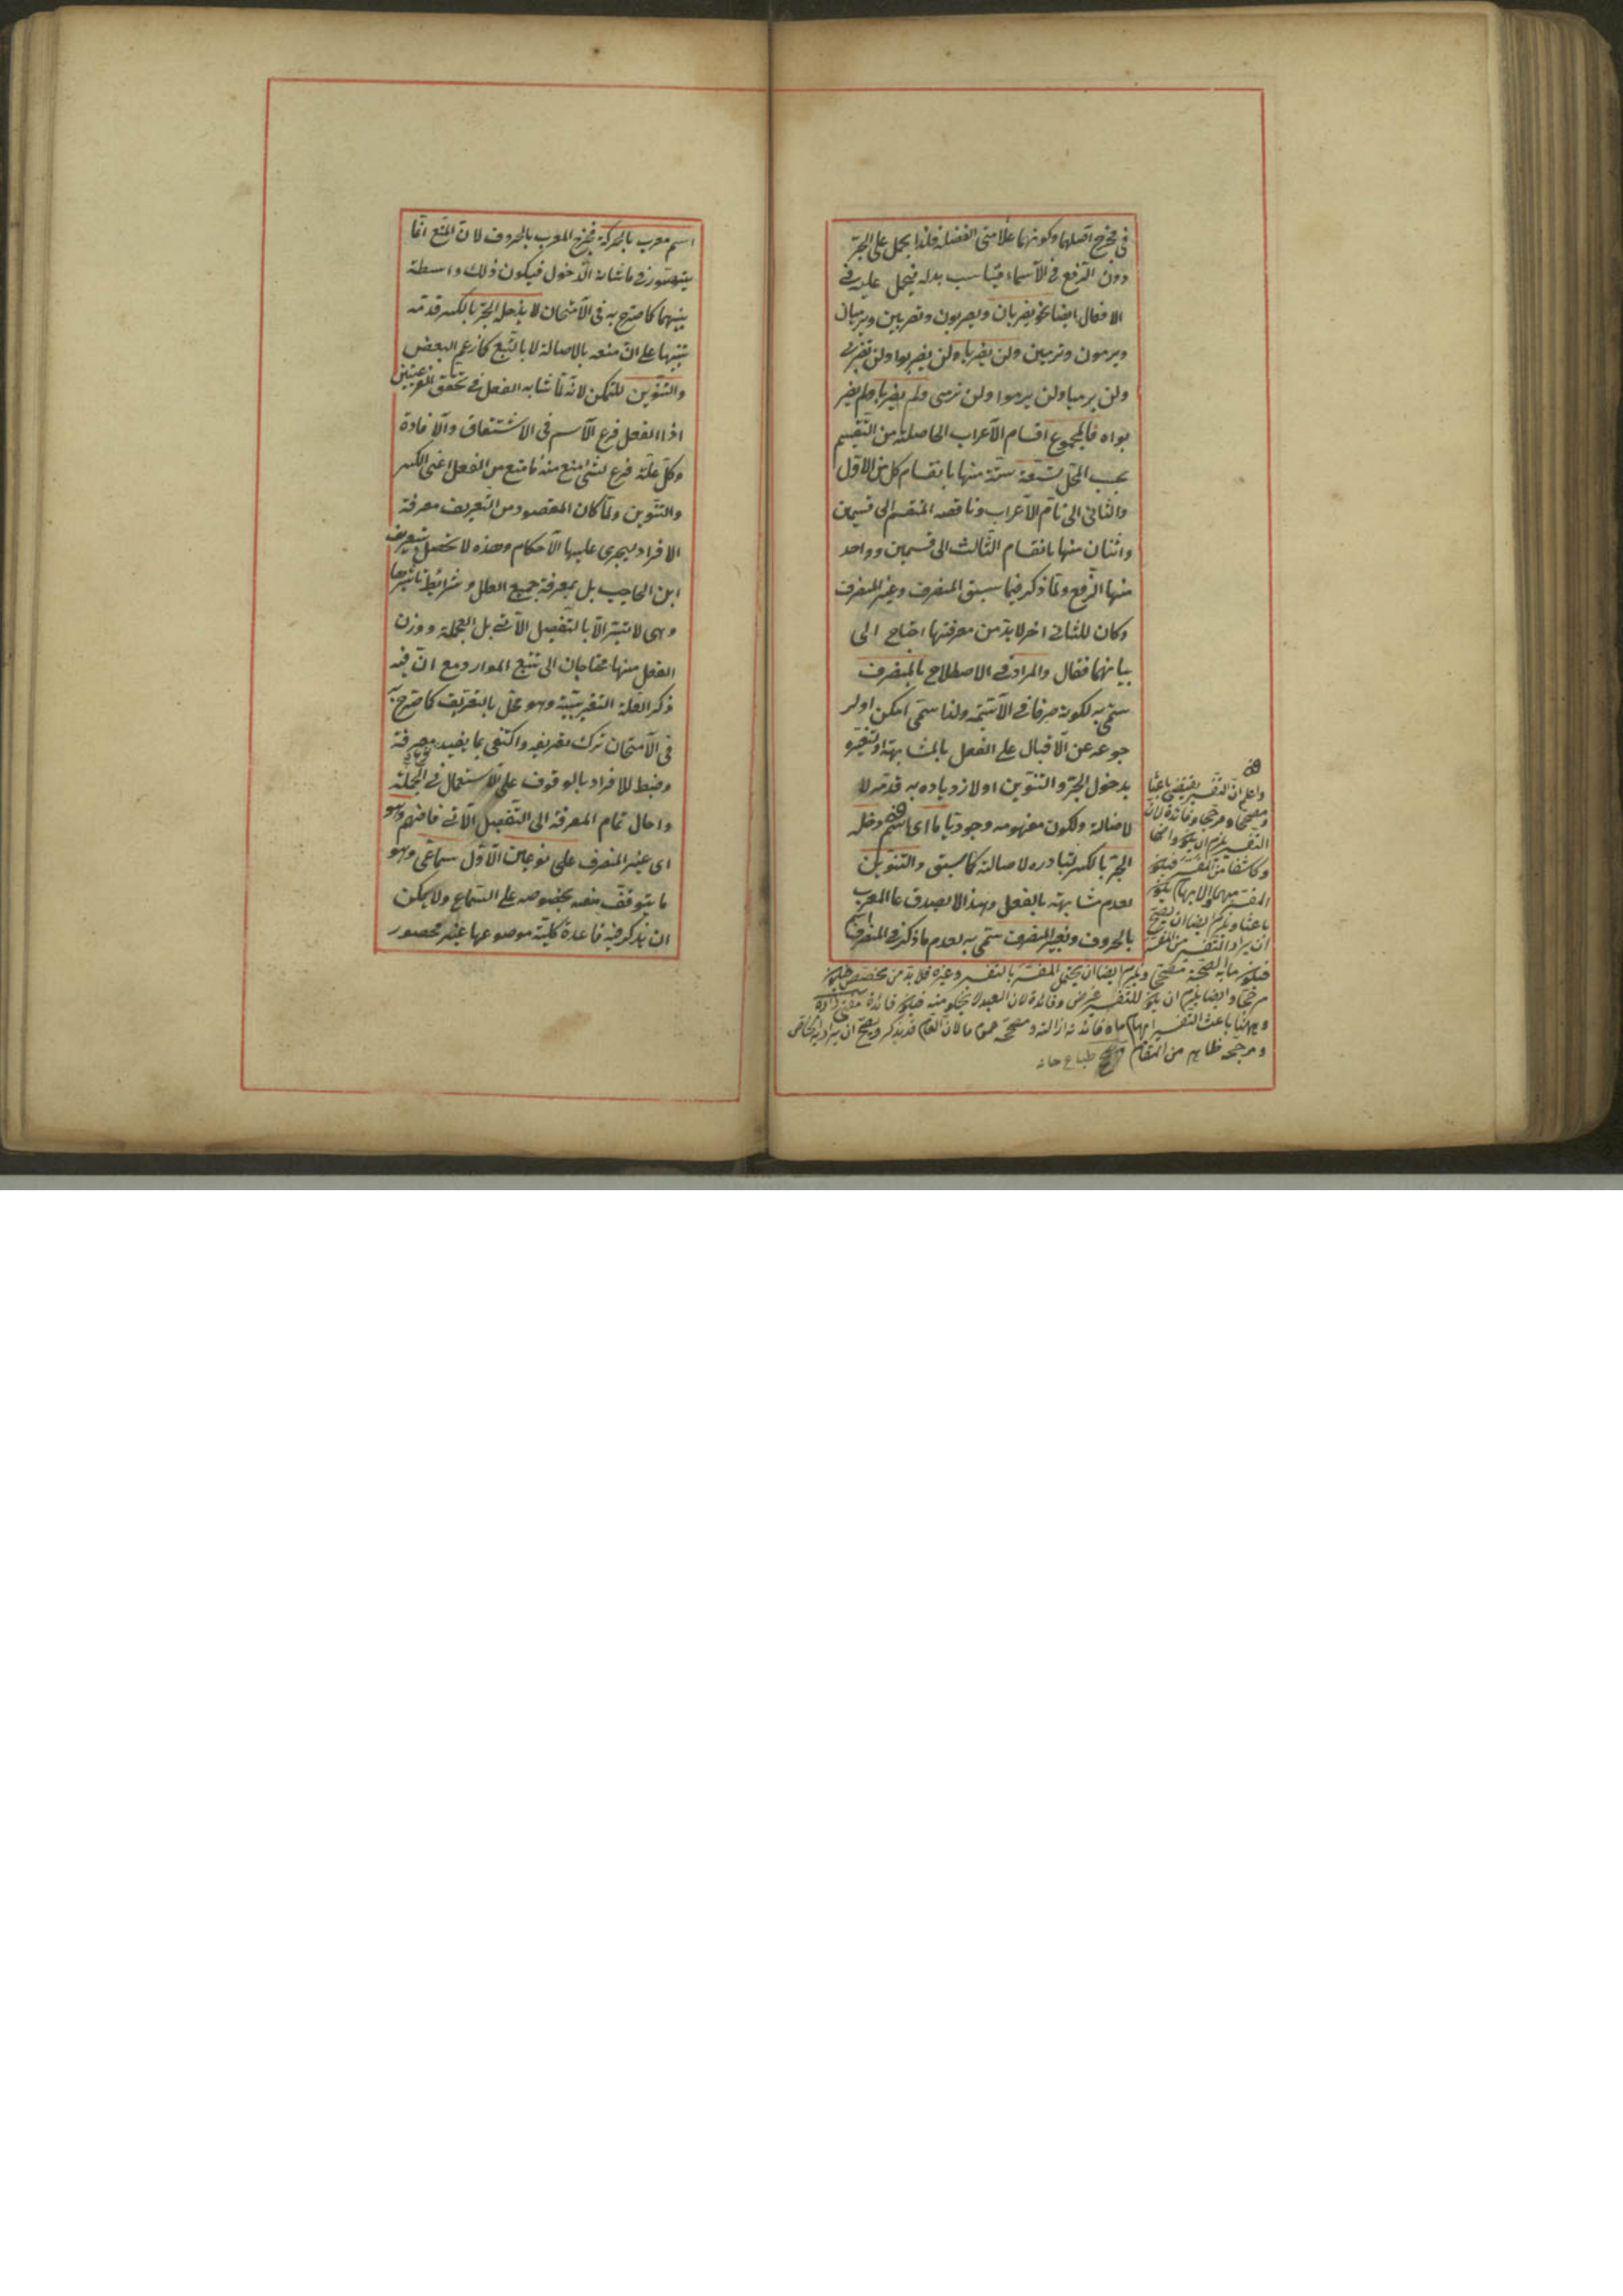 في مخرج اصلها وكونهما علامتى الفضلة فلذا يحمل على الجرّ
دون الرّفع في الأسماء فيناسب بدله فيحمل عليه في
الافعال ايضا نحو يضربان ويضربون وتضربين ويرميان
ويرمون وترمين ولن يضربا ولن يضربوا ولن تضربي
ولن يرميا ولن يرموا ولن ترمى ولم يضربا ولم يضر
بواه فالمجموع اقسام الأعراب الحاصلة من التّقسيم
بحسب المحلّ تسعة ستّة منها بانقسام كل من الاوّل
والثانى الى تام الأعراب وناقصه المنقسم الى قسمين
واثنان منها بانقسام الثّالث الى قسمين وواحد
منها الرّفع ولمّا ذكر فيما سبق المنصرف وغير المنصرف
وكان للثاني اخر لا بدّ من معرفتها احتاج الى
بيانهما فقال والمراد في الاصطلاح بالمنصرف
سمّى به لكونه صرفا في الأسميّة ولذا سمّى امكن او لر
جوعه عن الأقبال على الفعل بالمشابهة او لتغيّره
بدخول الجرّ والتنوين او لازدياده به قدّمه لا
لاصالة ولكون مفهومه وجوديّا ما اى اسم دخله
الجرّ بالكسر لتبادره لاصالته كما سبق والتنوين
لعدم مشابهته بالفعل وهذا لا يصدق على المعرب
بالحروف وبغير المنصرف سمّى به لعدم ما ذكر في المنصرف اسم
واعلم انّ التفسير يقتضى باعثا
ومصححا ومرجحا وفائدة لان
التفسير يلزم ان يكون واضحا
وكاشفا من المفسّر فيكون
المفسّر مبهما والابهام يكون
باعثا ويلزم ايضا ان يصحّ
ان يراد التفسير من المفسّر
فيكون ما به الصحّة مصحّحا ويلزم ايضا ان يحتمل المفسّر بالتفسير وغيره فلا بدّ من مخصّص فيكون
مرجّحا وايضا يلزم ان يكون للتفسير غرض وفائدة لان العبد لا يخلو منه فيكون فائدة
وههنا باعث التفسير ابهام ما وفائدته ازالته ومصحّحه عموم ما لان العام قد يذكر ويصحّ ان يراد به الخاص
ومرجّحه ظاهر من المقام
اسم معرب بالحركة فخرج المعرب بالحروف لان المنع انّما
يتصّور في ما شانه الدّخول فيكون ذلك واسطة
بينهما كما صرّح به فى الأمتحان لا يدخله الجرّ بالكسر قدّمه
تنبيها على انّ منعه بالاصالة لا بالتّبع كما زعم البعض
والتّنوين للتمكن لانّه لمّا شابه الفعل في تحقق الفرعيتين
اذ الفعل فرع الأسم فى الاشتقاق والأفادة
وكلّ علّة فرع لشئ منع منه ما منع من الفعل اعنى الكسر
والتنوين ولمّا كان المقصود من التّعريف معرفة
الافراد ليجرى عليها الأحكام وهذه لا تحصل بتعريف
ابن الحاجب بل بمعرفة جميع العلل وشرائط تاثيرها
وهى لا تتيسّر الّا بالتّفصيل الآتي بل العجمة ووزن
الفعل منها محتاجان الى تتبع الموارد مع انّ فيه
ذكر العلّة التقريبيّة وهو مخلّ بالتعريف كما صرّح به
فى الأمتحان ترك تعريفه واكتفى بما يفيد معرفة
وضبط للافراد بالوقوف على الأستعمال في الجملة
واحال تمام المعرفة الى التّفصيل الآتي فافهم وهو
اى غير المنصرف على نوعين الأوّل سماعى وهو
ما يتوقّف منعه بخصوصه على السّماع ولا يمكن
ان يذكر فيه قاعدة كليّة موضوعها غير محصور